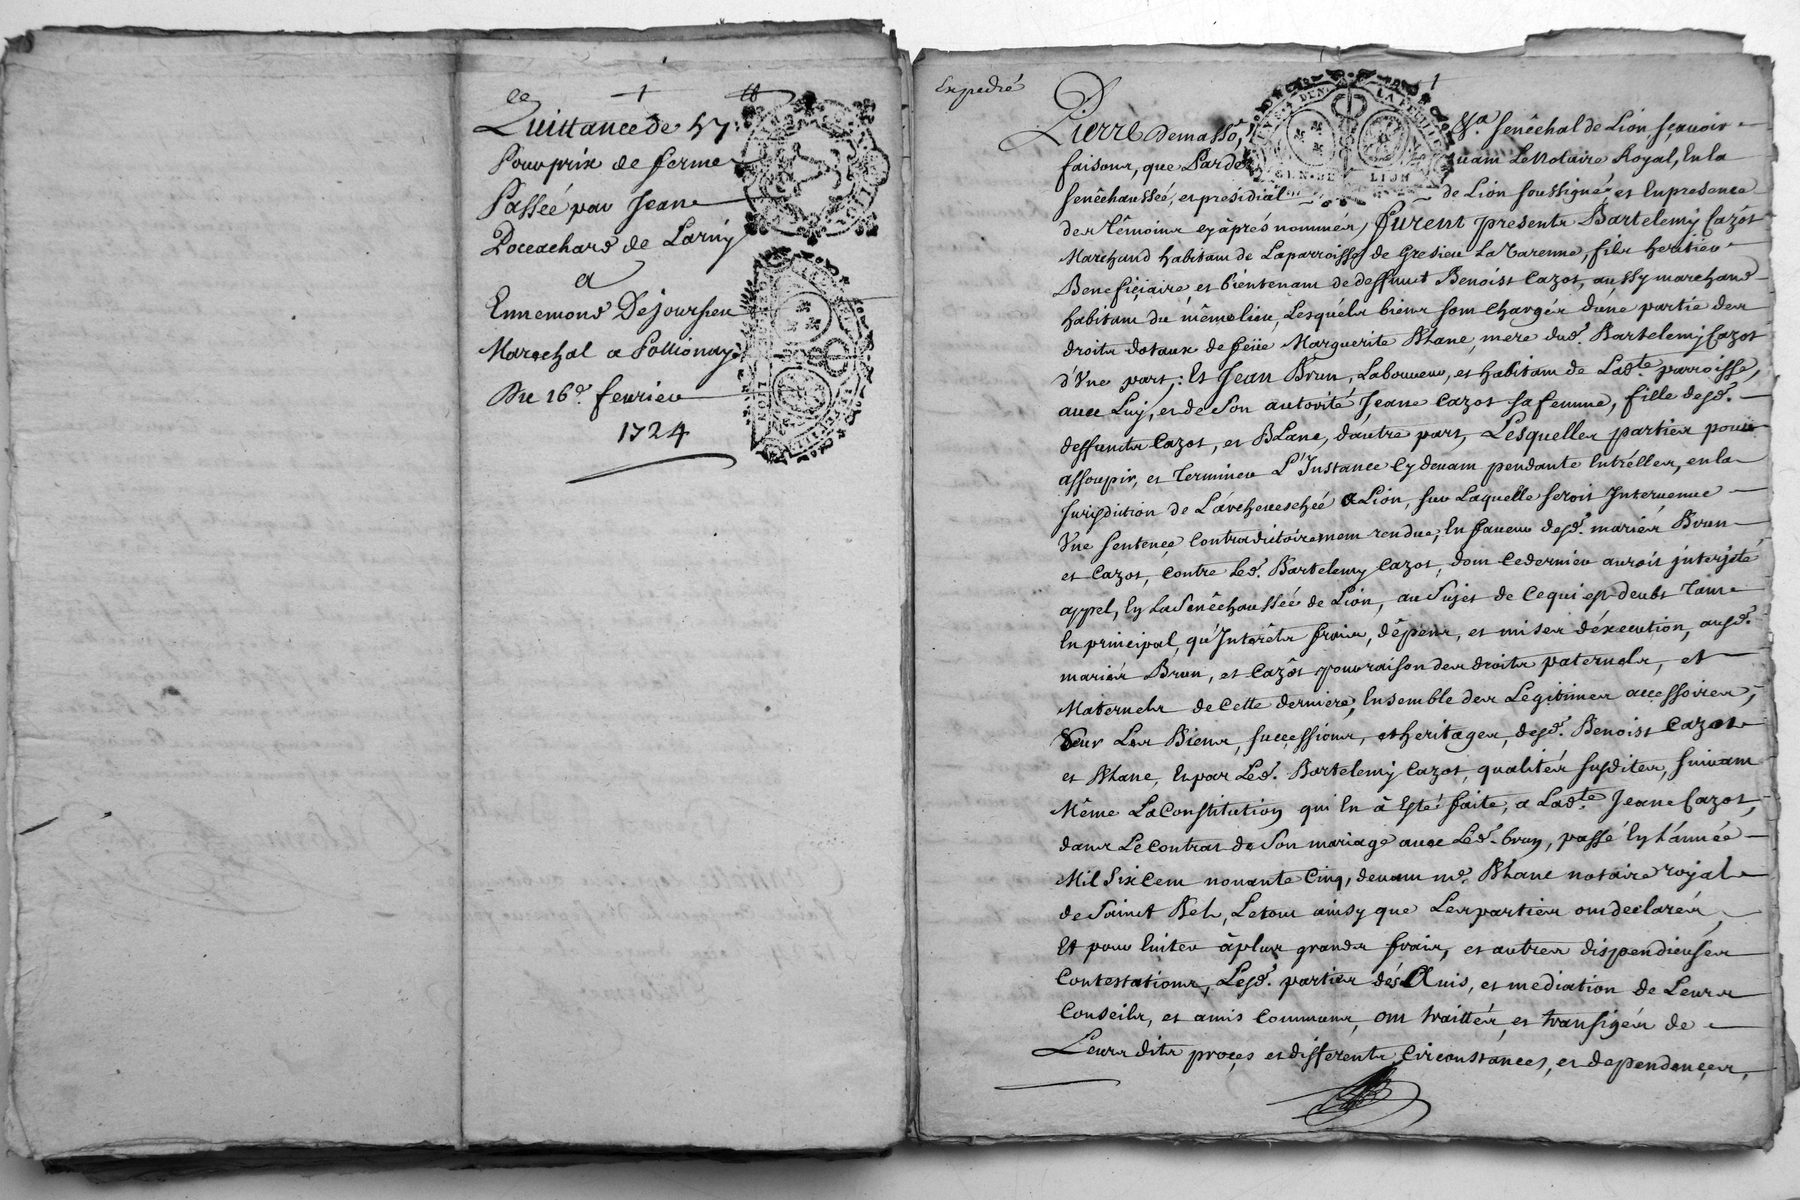 Quittance de 47:tt
Pour prix de ferme
Passée par Jean
de Larny
a
Ennemond Dejoursieu
Marechal a Pollionay
Du 16e. fevrier
1724
Expedié
Pierre Demasso, Sénêchal de Lion sçavoir
faisons, que Pardevant Le Notaire Royal, En la
Senêchaussée, et présidial de Lion soussigné et En presence
des Têmoins cy àprés nommés, furent presents Bartelemy Cazot
Marchand habitant de La parroisse de Gresieu La Varenne, fils heritier
Beneficiaire et bientenant de deffunt Benoist Cazot, aussy marchand
habitant du même lieu, Lesquéls biens sont Chargés d'une partie des
droits dotaux de feüe Marguerite Blanc, mere dud. Bartelemy Cazot
d'Une part; Et Jean Brun, Laboureur, et habitant de Ladte. parroisse,
avec Luy, et de Son autorité Jeane Cazot sa femme, fille desd.
deffunts Cazot, et Blanc, d'autre part, Lesquelles parties pour
assoupir, et Terminer L'Instance Cy devant pendante Entr'élles, en la
Jurisdiction de L'archevesché a Lion, sur Laquelle seroit Intervenue
Vne sentence Contradictoirement rendue, En faveur desd. mariés Brun
et Cazot, Contre Led. Bartelemy Cazot, dont Ce dernier auroit interjeté
appel, En La Senêchaussée de Lion, au Sujet de Ce qui est deubt Tant
En principal, qu'Interêts frais, dépens, et mises d'éxecution, ausd.
mariés Brun, et Cazot pour raison des droits paternels, et
Maternels de Cette derniere, Ensemble des Legitimes accessoires,
Sur Les Biens, successions, et heritages, desd. Benoist Cazot
et Blanc, Et par Led. Bartelemy Cazot, qualités susdites, suivant
Même La Constitution qui En à Esté faite, a Ladte. Jeane Cazot,
dans Le Contrat de Son mariage avec Led. brun, passé En L'année
Mil Six Cent nonante Cinq, devant me. Blanc notaire royal
de Sainct Bel, Le tout ainsy que Les parties ont declarés,
Et pour Eviter à plus grands frais, et autres dispendieuses
Contestations, Lesd. parties dés Avis, et mediation de Leurs
Conseils, et amis Communs, ont traittés, et transigés de
Leurs dits proces et differents Circonstances, et dependences,